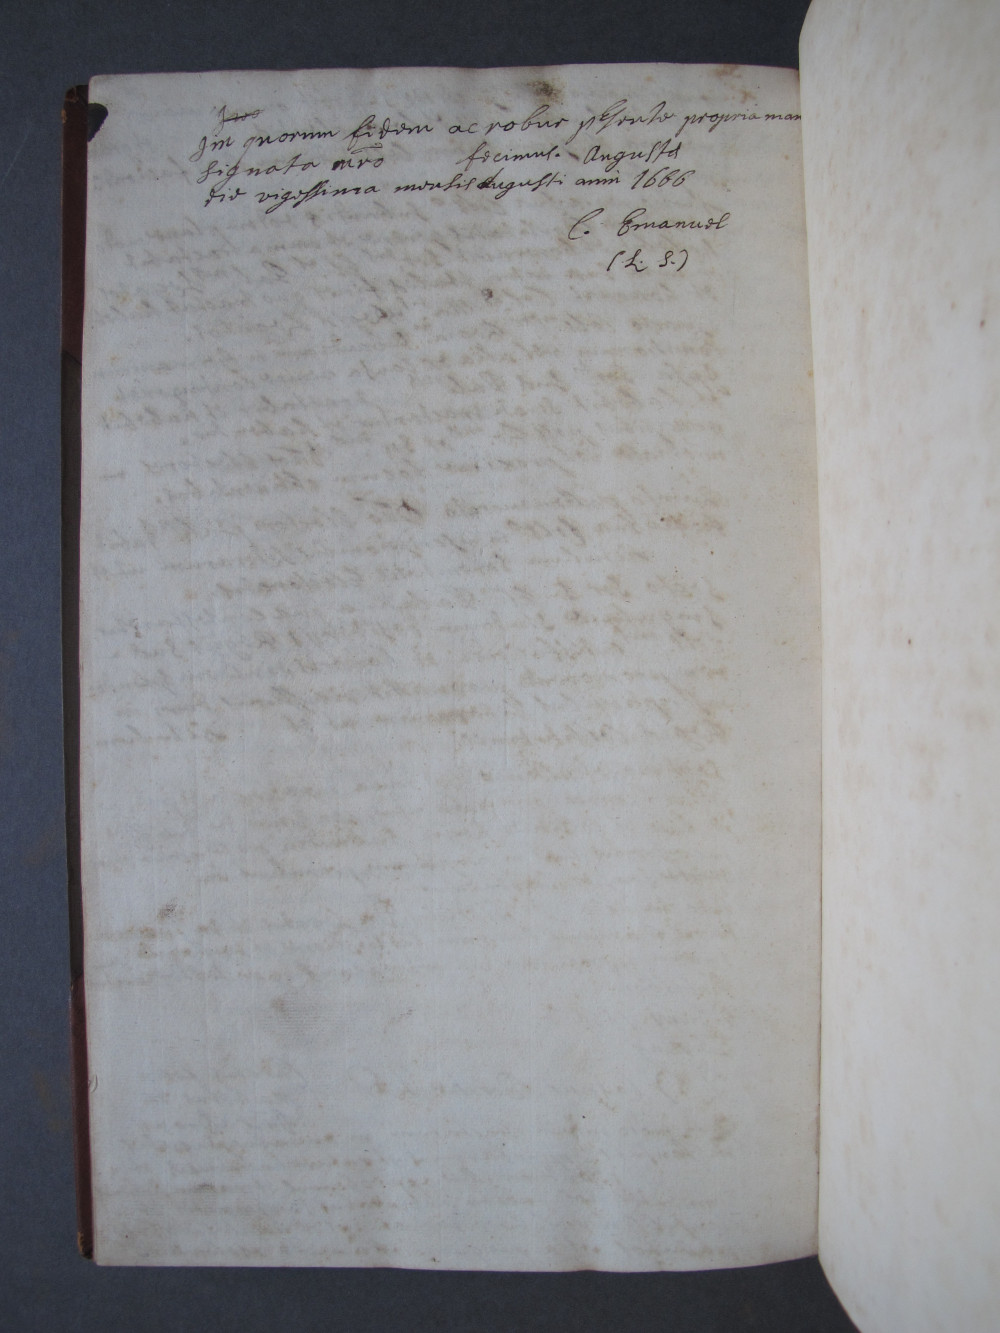 In quorum fidem ac robur pñsentes propria man
signata nr̃o fecimus. Augustæ
die vigessima mensis Augusti anni 1666
C. Emanuel
(L. S.)